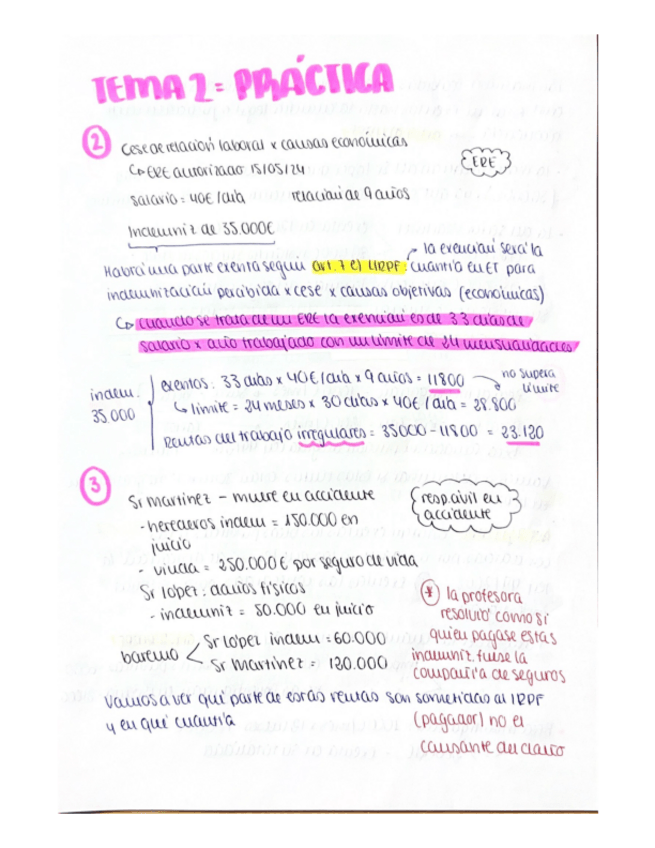 TEMA 2 = PRÁCTICA
2 Cese de relación laboral x causas económicas
ERE
↳ ERE autorizado 15/05/24
salario = 40€/día relación de 9 años
Indemniz de 35.000€
Habrá una parte exenta según art. 7 e) LIRPF: → la exención será la
cuantía en ET para
indemnización percibida x cese x causas objetivas (económicas)
↳ cuando se trata de un ERE la exención es de 33 días de
salario x año trabajado con un límite de 24 mensualidades
indem. 35.000
exentos: 33 días x 40€/día x 9 años = 11800 → no supera límite
↳ límite = 24 meses x 30 días x 40€/día = 28.800
Rentas del trabajo irregulares = 35000 - 11800 = 23.120
3 Sr Martínez - muere en accidente
resp. civil en accidente
- herederos indem = 150.000 en
juicio
- viuda = 250.000€ por seguro de vida
Sr López: daños físicos
- indemniz = 80.000 en juicio
baremo < Sr López indem = 60.000
Sr Martínez = 120.000
* la profesora
resolvió como si
quien pagase estas
indemniz. fuese la
compañía de seguros
(pagador) no el
causante del daño
Vamos a ver qué parte de estas rentas son sometidas al IRPF
y en qué cuantía